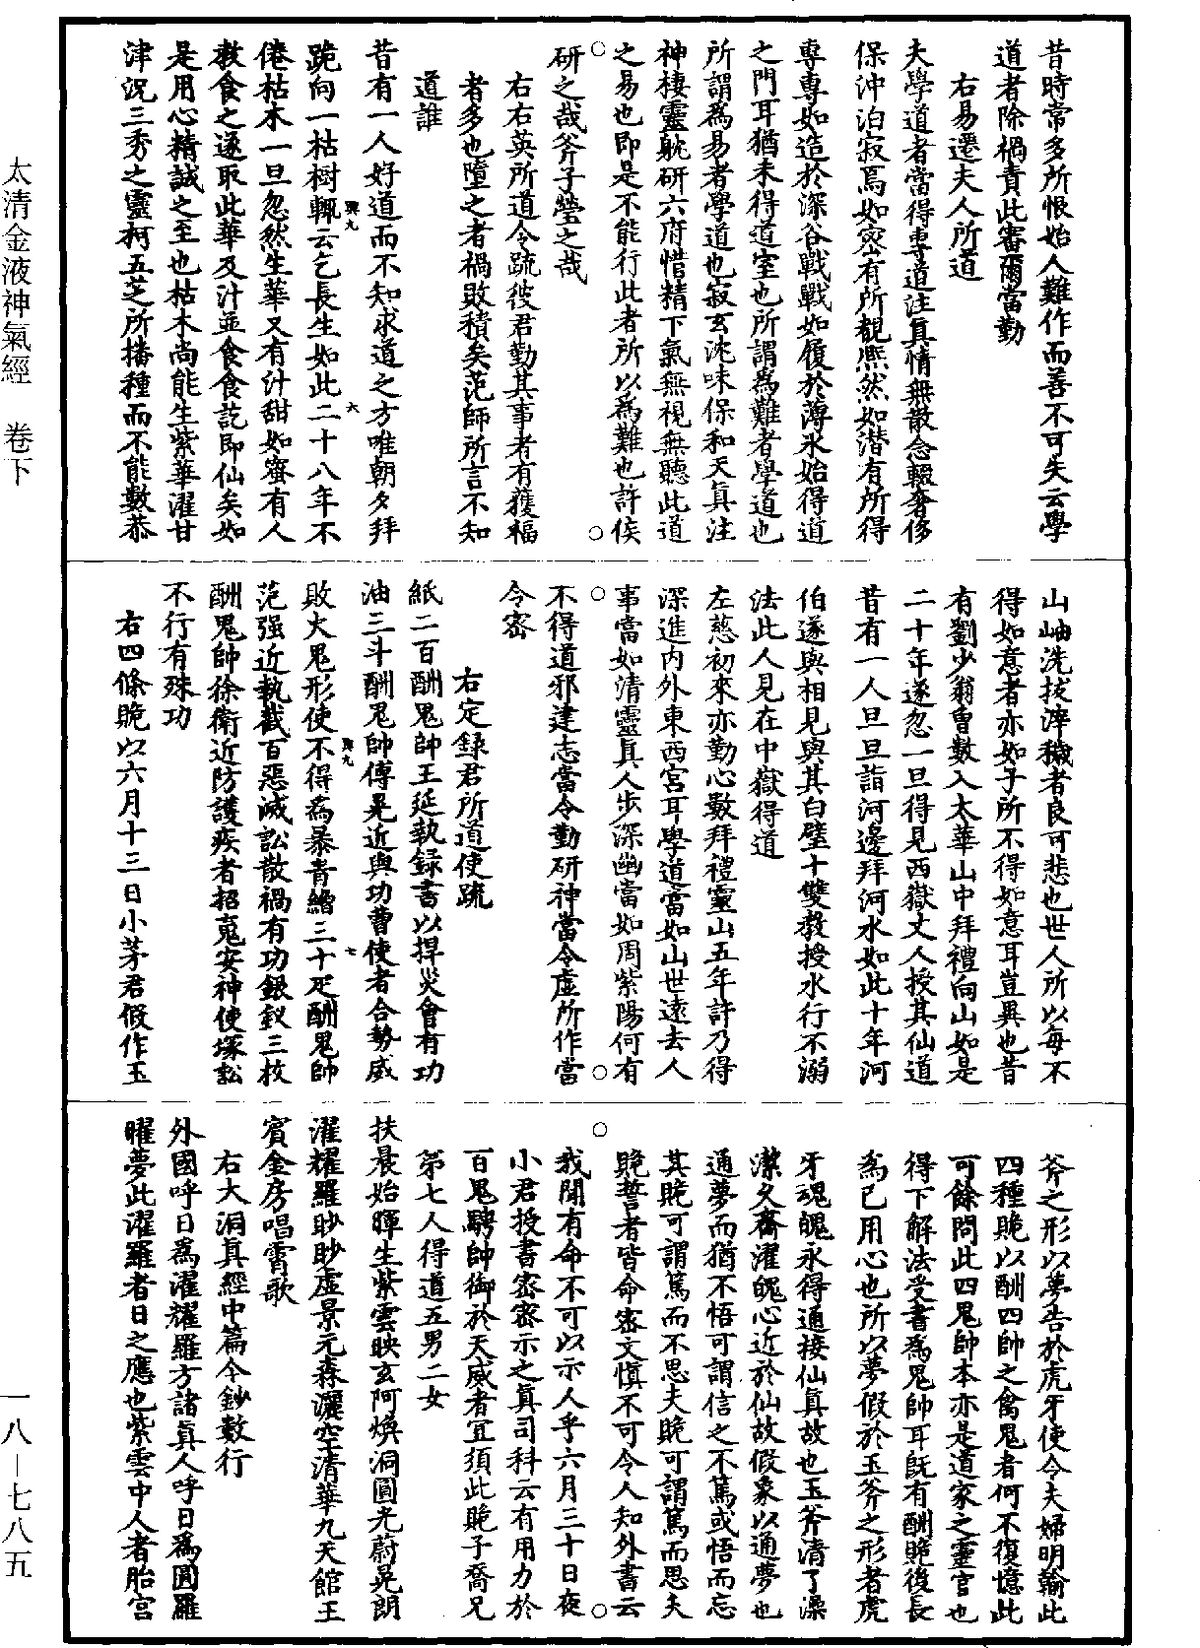 昔時常多所恨始人難作而善不可失云學
道者除禍責此審爾當勤
右易遷夫人所道
夫學道者當得專道注真情無散念輟奢侈
保沖泊寂焉如密有所覩熈然如潜有所得
專專如造於深谷戰戰如履於薄氷始得道
之門耳猶未得道室也所謂為難者學道也
所謂為易者學道也寂玄沈味保和天真注
神棲靈躭研六府惜精下氣無視無聽此道
之易也即是不能行此者所以為難也許侯
研之哉斧子瑩之哉
右右英所道令疏彼君勤其事者有獲福
者多也墮之者禍敗積矣范師所言不知
道誰
昔有一人好道而不知求道之方唯朝夕拜
跪向一枯樹輒云乞長生如此二十八年不
倦枯木一旦忽然生華又有汁甜如蜜有人
教食之遂取此華及汁並食食訖即仙矣如
是用心精誠之至也枯木尚能生紫華濯甘
津況三秀之靈柯五芝所播種而不能數恭
山岫洗拔滓穢者良可悲也世人所以每不
得如意者亦如子所不得如意耳豈異也昔
有劉少翁曾數入太華山中拜禮向山如是
二十年遂忽一旦得見西嶽丈人授其仙道
昔有一人旦旦詣河邊拜河水如此十年河
伯遂與相見與其白璧十雙教授水行不溺
法此人見在中嶽得道
左慈初來亦勤心數拜禮靈山五年許乃得
深進內外東西宮耳學道當如山世遠去人
事當如清靈真人步深幽當如周紫陽何有
不得道邪建志當令勤研神當令虛所作當
令密
右定録君所道使疏
紙二百酬鬼帥王延執録書以捍災會有功
油三斗酬鬼帥傅晃近與功曹使者合勢威
敗大鬼形使不得為暴青繒三十疋酬鬼帥
范强近執截百惡滅訟散禍有功銀釵三枚
酬鬼帥徐衛近防護疾者招䰟安神使塚訟
不行有殊功
右四條脆以六月十三日小茅君假作玉
斧之形以夢告於虎牙使令夫婦明輸此
四種脆以酬四帥之禽鬼者何不復憶此
可餘問此四鬼帥本亦是道家之靈官也
得下解法受書為鬼帥耳旣有酬脆後長
為已用心也所以夢假於玉斧之形者虎
牙魂魄永得通接仙真故也玉斧清了澡
潔久齋濯魄心近於仙故假象以通夢也
通夢而猶不悟可謂信之不篤或悟而忘
其脆可謂篤而不思夫脆可謂篤而思夫
脆誓者皆命密文慎不可令人知外書云
我聞有命不可以示人乎六月三十日夜
小君授書密密示之真司科云有用力於
百鬼騁帥御於天威者宜須此脆子喬兄
第七人得道五男二女
扶晨始暉生紫雲映玄阿煥洞圓光蔚晃朗
濯耀羅眇眇虛景元森灑空清華九天館王
賓金房唱霄歌
右大洞真經中篇今鈔數行
外國呼日為濯耀羅方諸真人呼日為圓羅
曜夢此濯羅者日之應也紫雲中人者胎宮
興九
六
興九
七
太清金液神氣經　卷下
一八—七八五